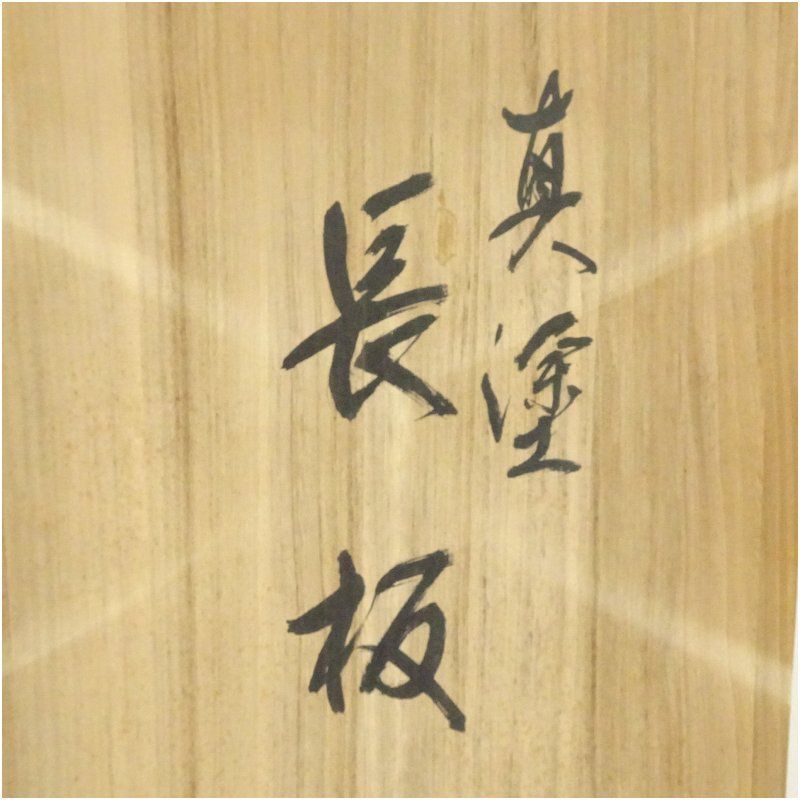 真塗
長板